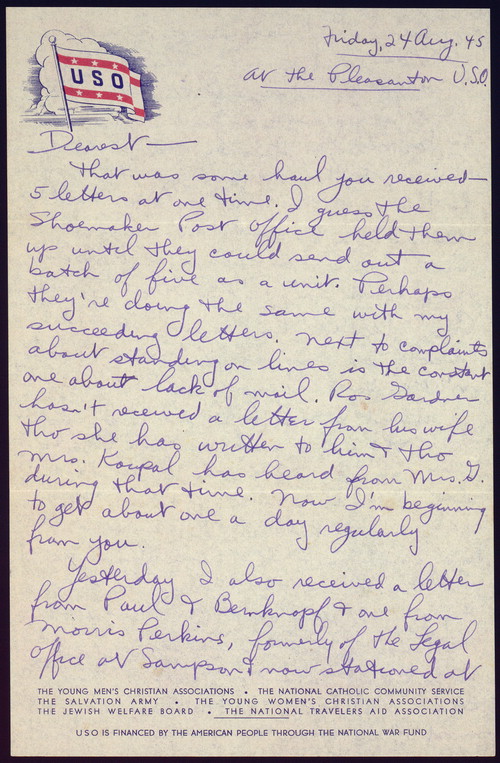 USO
Friday, 24 Aug. 45
At the Pleasanton U.S.O.
Dearest—
That was some haul you received—
5 letters at one time. I guess the
Shoemaker Post Office held them
up until they could send out a
batch of five as a unit. Perhaps
they're doing the same with my
succeeding letters. Next to complaints
about standing on lines is the constant
one about lack of mail. Ros Gardner
hasn't received a letter from his wife
tho she has written to him & tho
Mrs. Koupal has heard from Mrs. G.
during that time. Now I'm beginning
to get about one a day regularly
from you.
Yesterday I also received a letter
from Paul & Bernknopf & one from
Morris Perkins, formerly of the Legal
Office at Sampson & now stationed at
THE YOUNG MEN'S CHRISTIAN ASSOCIATIONS • THE NATIONAL CATHOLIC COMMUNITY SERVICE
THE SALVATION ARMY • THE YOUNG WOMEN'S CHRISTIAN ASSOCIATIONS
THE JEWISH WELFARE BOARD • THE NATIONAL TRAVELERS AID ASSOCIATION
USO IS FINANCED BY THE AMERICAN PEOPLE THROUGH THE NATIONAL WAR FUND